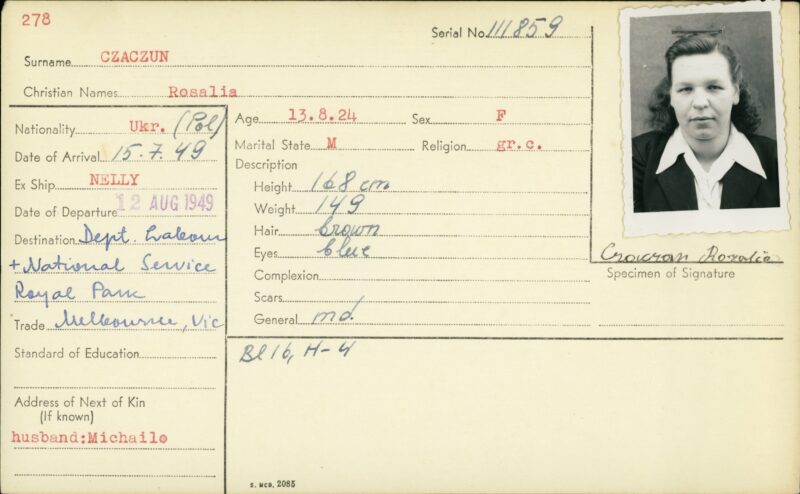 278
Serial No. 111859
Surname CZACZUN
Christian Names Rosalia
Nationality Ukr. (Pol)
Date of Arrival 15.7.49
Ex Ship NELLY
Date of Departure 12 AUG 1949
Destination Dept. Labour
+ National Service
Royal Park
Trade Melbourne, Vic
Standard of Education
Address of Next of Kin
(If known)
husband:Michailo
Age 13.8.24 Sex F
Marital State M Religion gr.c.
Description
Height 168 cm
Weight 149
Hair brown
Eyes blue
Complexion
Scars
General md.
Bl 16, H-4
Rozalia
Specimen of Signature
S. MCD. 2085